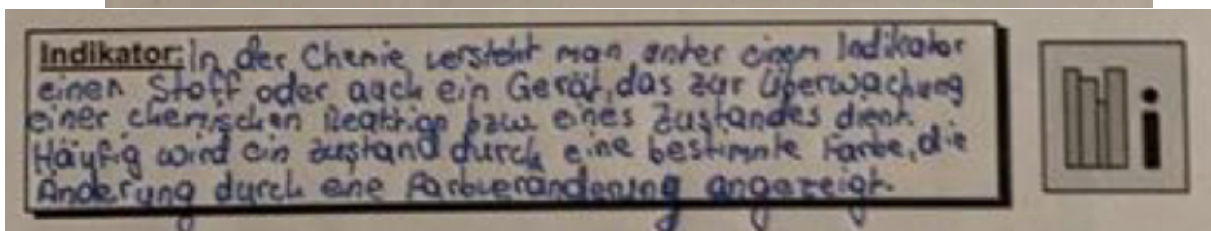 Indikator: In der Chemie versteht man unter einem Indikator
einen Stoff oder auch ein Gerät, das zur Überwachung
einer chemischen Reaktion bzw. eines Zustandes dient.
Häufig wird ein Zustand durch eine bestimmte Farbe, die
Änderung durch eine Farbveränderung angezeigt.
i